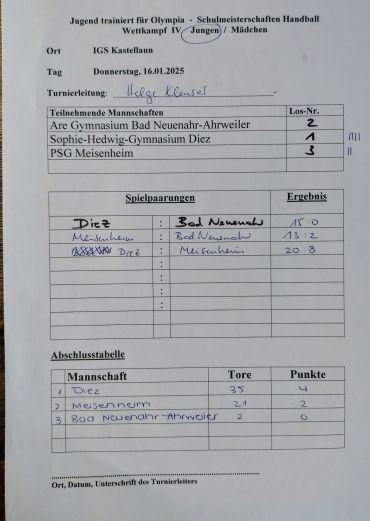 Jugend trainiert für Olympia - Schulmeisterschaften Handball
Wettkampf IV Jungen / Mädchen
Ort IGS Kastellaun
Tag Donnerstag, 16.01.2025
Turnierleitung: Helge
Teilnehmende Mannschaften Los-Nr.
Are Gymnasium Bad Neuenahr-Ahrweiler 2
Sophie-Hedwig-Gymnasium Diez 1
PSG Meisenheim 3 II
Spielpaarungen Ergebnis
Diez : Bad Neuenahr 15:0
Meisenheim : Bad Neuenahr 13:2
Diez : Meisenheim 20 8
:
:
:
:
Abschlusstabelle
Mannschaft Tore Punkte
1 Diez 35 4
2 Meisenheim 21 2
3 Bad Neuenahr-Ahrweiler 2 0
Ort, Datum, Unterschrift des Turnierleiters